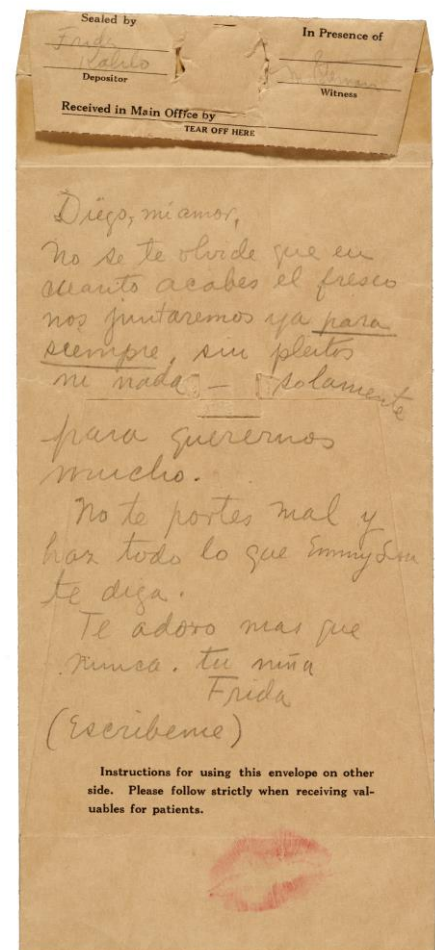 Sealed by
Frida
Kahlo
Depositor
In Presence of
Witness
Received in Main Office by
TEAR OFF HERE
Diego, mi amor,
No se te olvide que en
cuanto acabes el fresco
nos juntaremos ya para
siempre, sin pleitos
ni nada — solamente
para querernos
mucho.
No te portes mal y
haz todo lo que Emmy Lou
te diga.
Te adoro mas que
nunca. tu niña
Frida
(Escribeme)
Instructions for using this envelope on other
side. Please follow strictly when receiving val-
uables for patients.